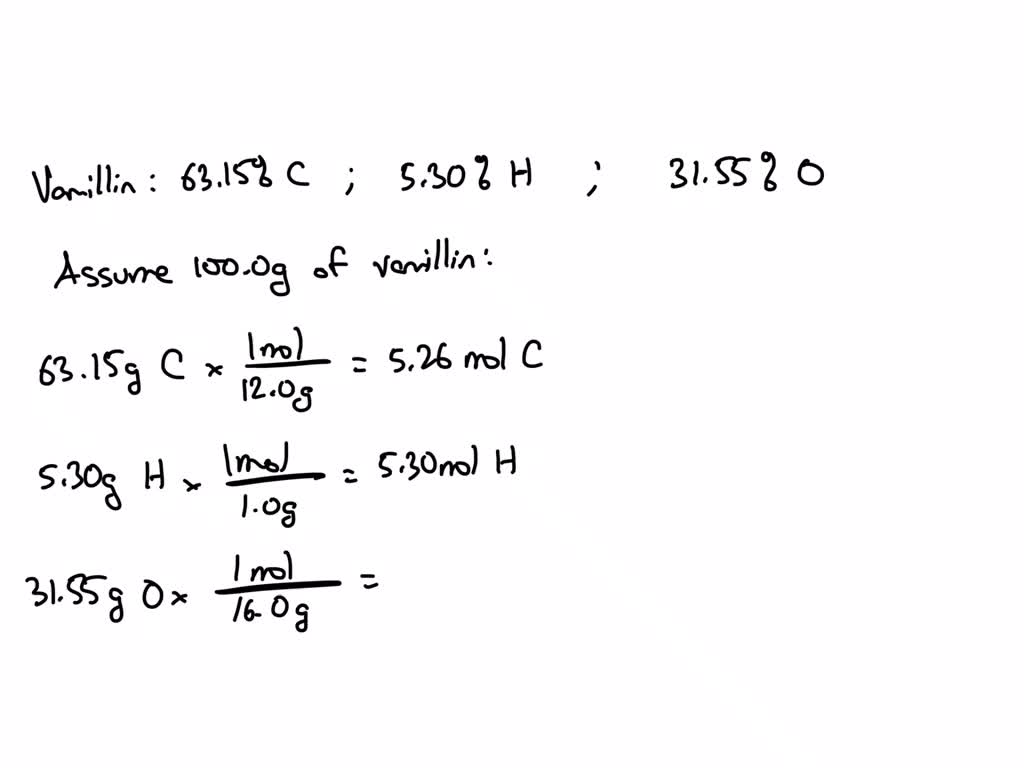 Vanillin: 63.15% C ; 5.30% H ; 31.55% O
Assume 100.0g of vanillin:
63.15g C × 1mol/12.0g = 5.26 mol C
5.30g H × 1mol/1.0g = 5.30mol H
31.55g O × 1mol/16.0g =